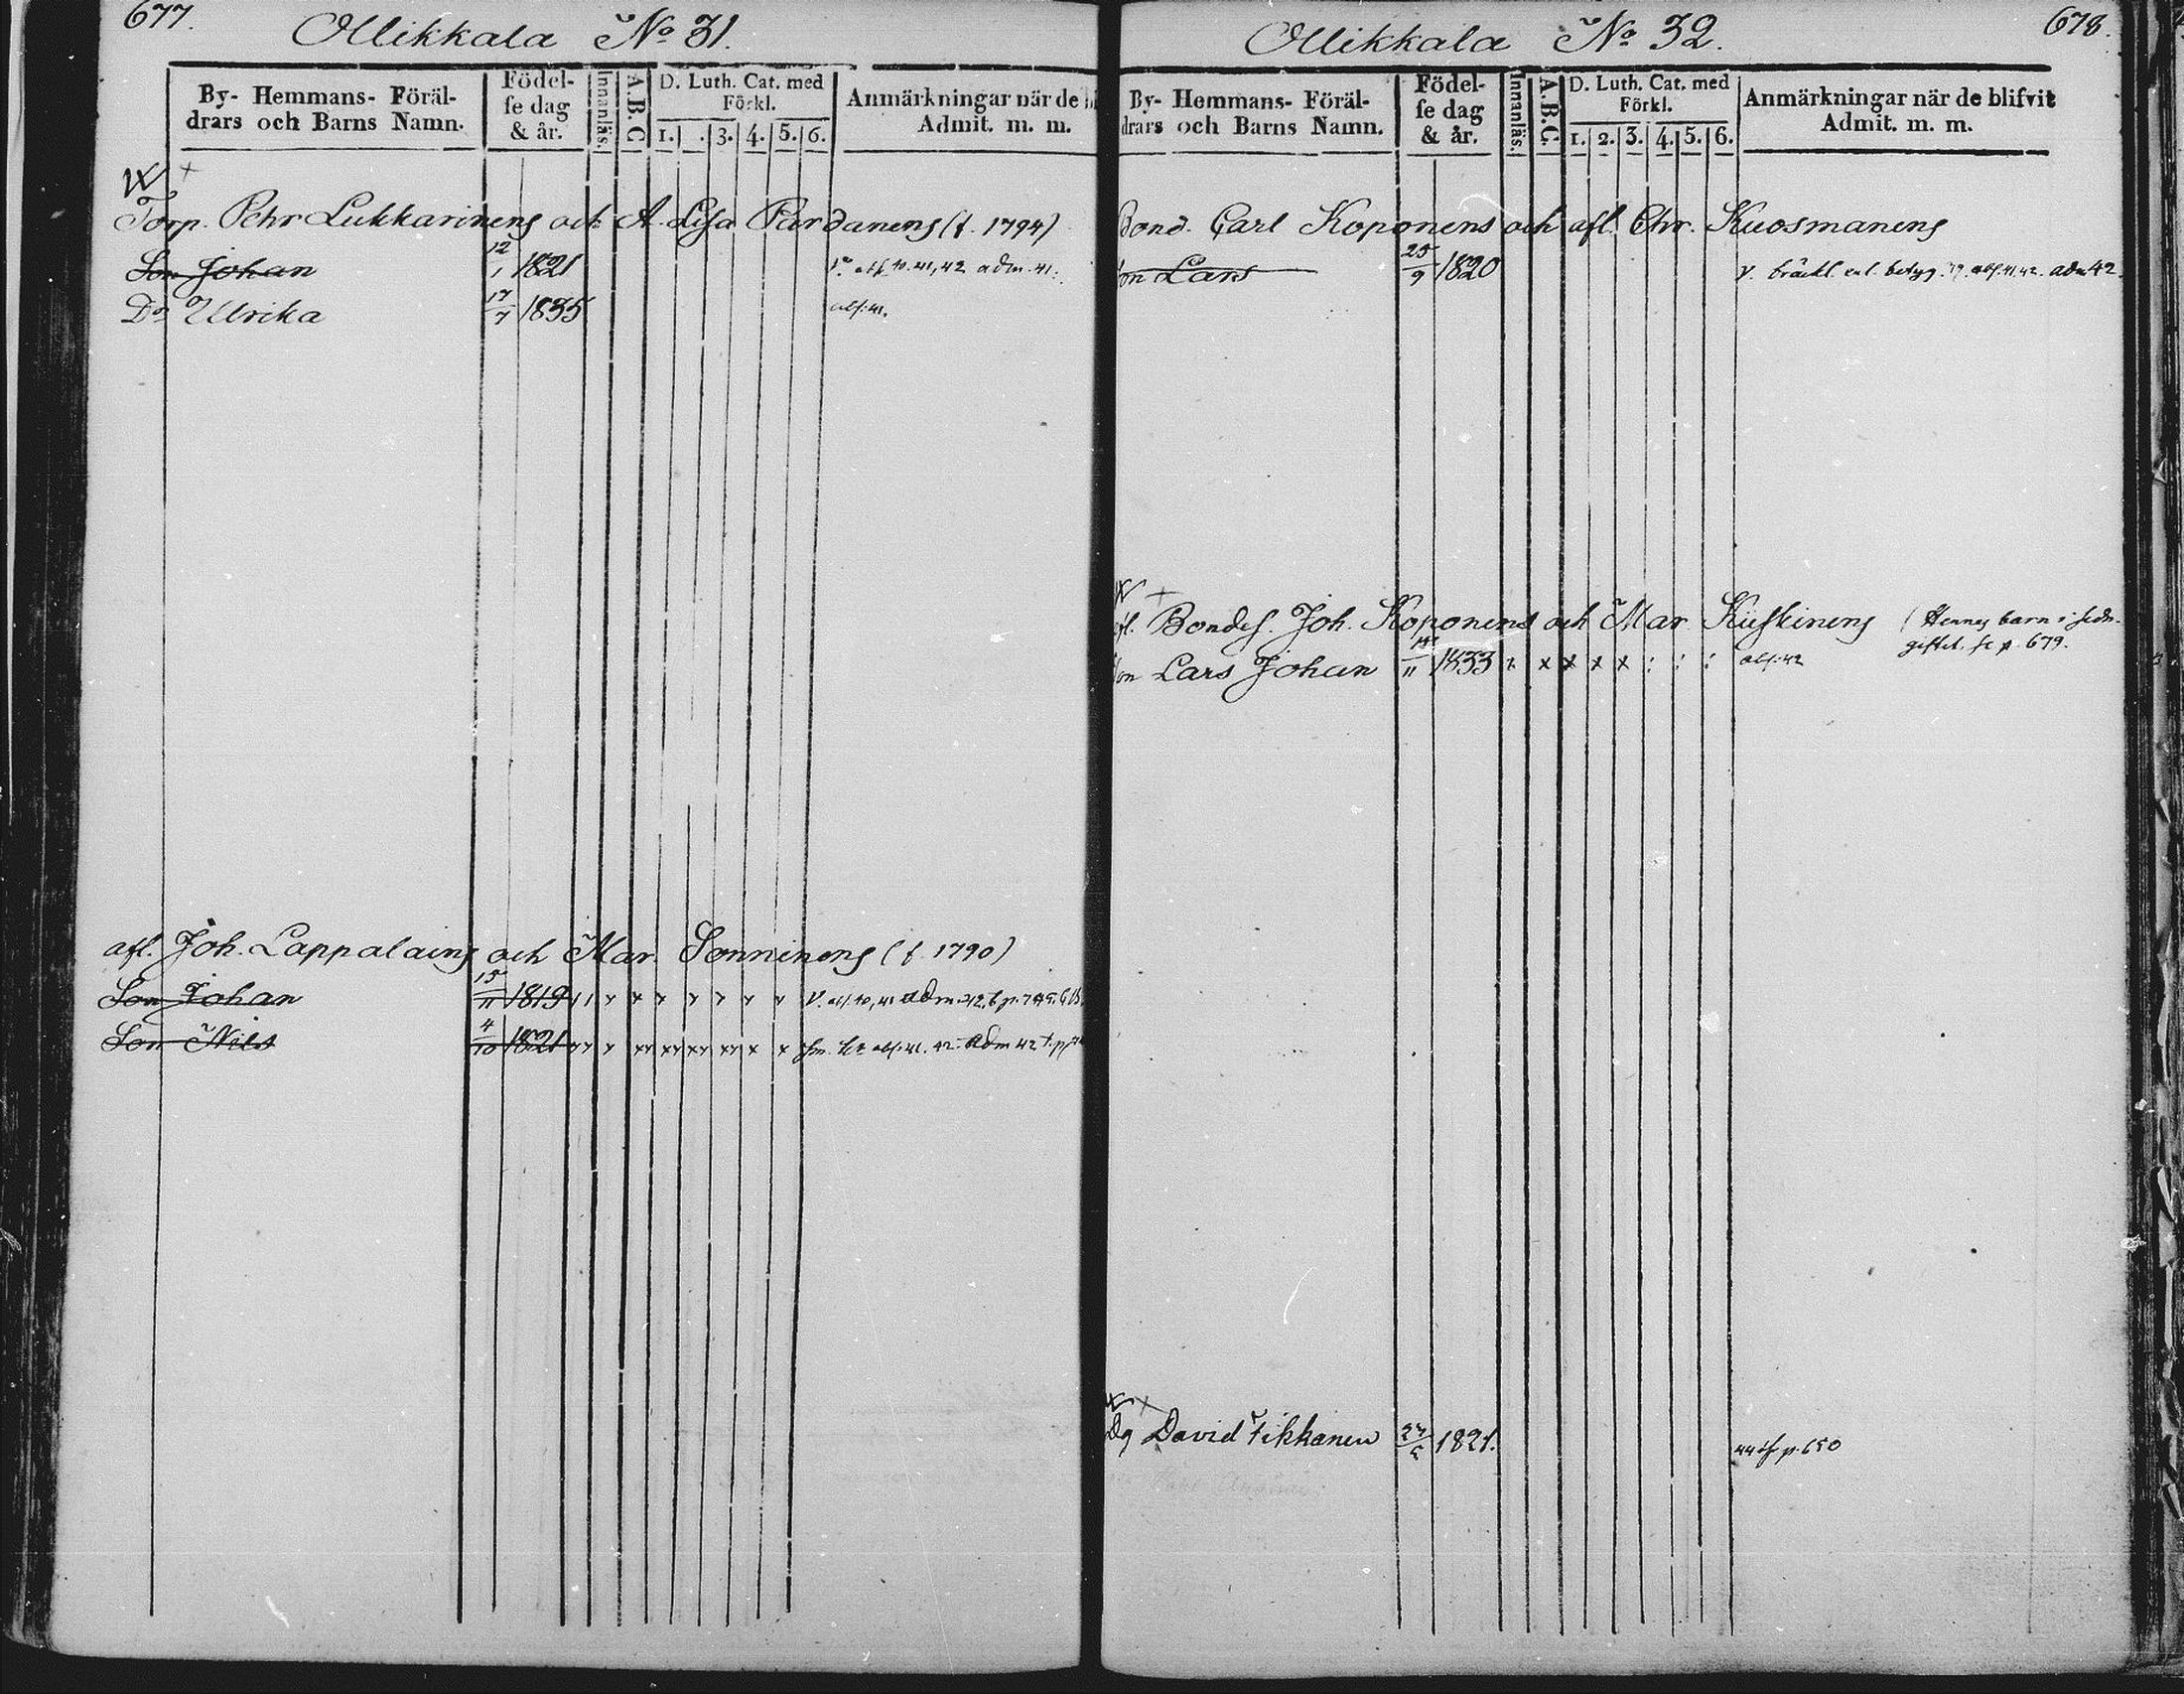 677.
Ollikkala No 31.
By- Hemmans- Föräl-
drars och Barns Namn.
Födel-
se dag
& år.
Innanläs.
A.B.C
D. Luth. Cat. med
Förkl.
1. . 3. 4. 5. 6.
Anmärkningar när de bl
Admit. m. m.
Torp. Pehr Lukkarinens och A. Lisa Pardanens (f. 1794)
Son Johan 12/1 1821 41, 42 adm. 41.
Dr Ulrika 17/7 1835 abs. 41.
afl. Joh. Lappalains och Mar. Sonninens (f. 1790)
Son Johan 15/11 1819 V. abs. 40, 41 adm. 42.
Son Nils 4/10 1821 abs. 41. 42. adm 42
Ollikkala No 32.
678.
By- Hemmans- Föräl-
drars och Barns Namn.
Födel-
se dag
& år.
Innanläs.
A.B.C.
D. Luth. Cat. med
Förkl.
1. 2. 3. 4. 5. 6.
Anmärkningar när de blifvit
Admit. m. m.
Bond. Carl Koponens och afl. Chr. Kuosmanens
Son Lars 25/9 1820 V. bräckl. enl. betyg. 39. abs. 41. 42. adm 42.
afl. Bondes. Joh. Koponens och Mar. Kuskinens (Hennes barn i sedn.
giftet, se p. 679.
Son Lars Johan 1833 x x x x x : : : abs. 42
Dg David Tikkanen 1821. 44 p. 650